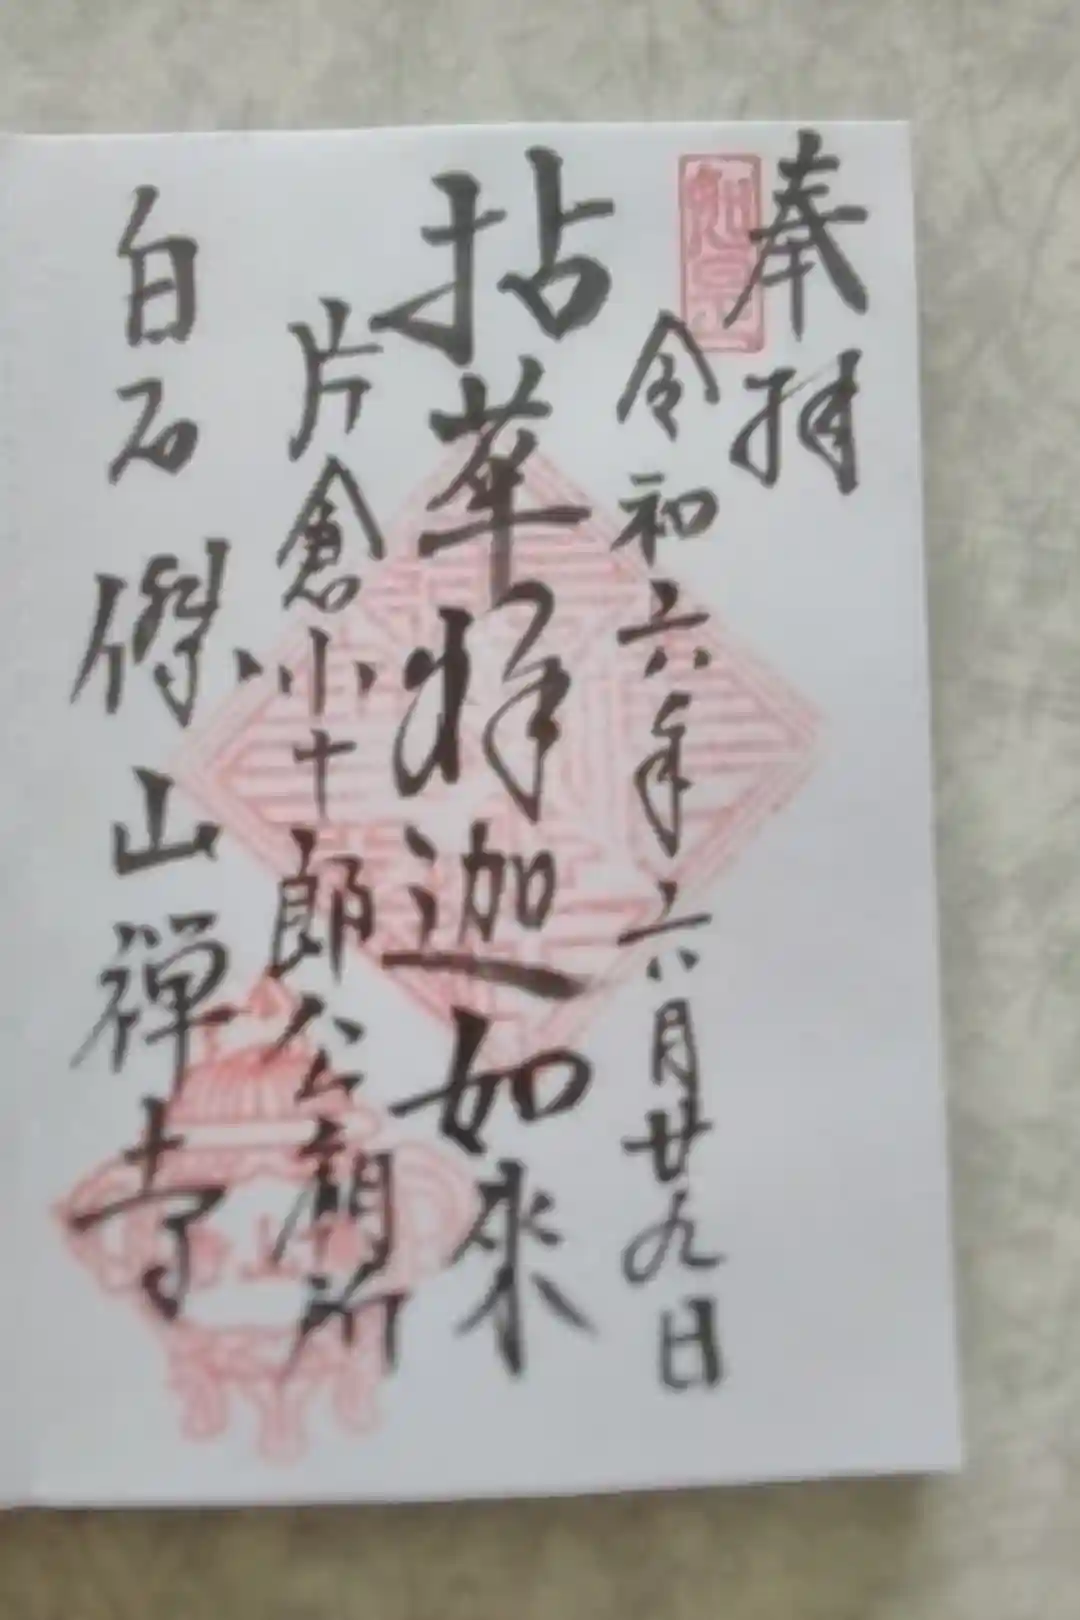 奉拝
令和六年六月廿九日
拈華釋迦如來
片倉小十郎公廟所
白石 傑山禅寺